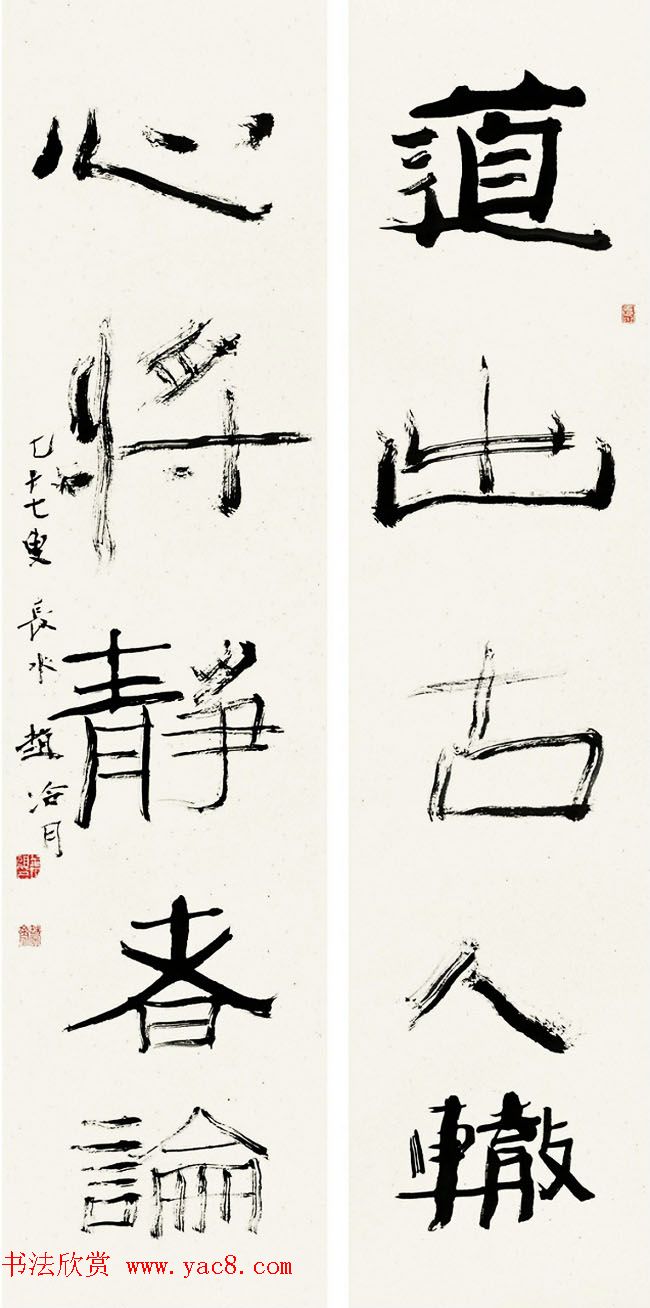 道出古人轍
心將靜者論
八十七叟 長水 趙冷月
书法欣赏 www.yac8.com